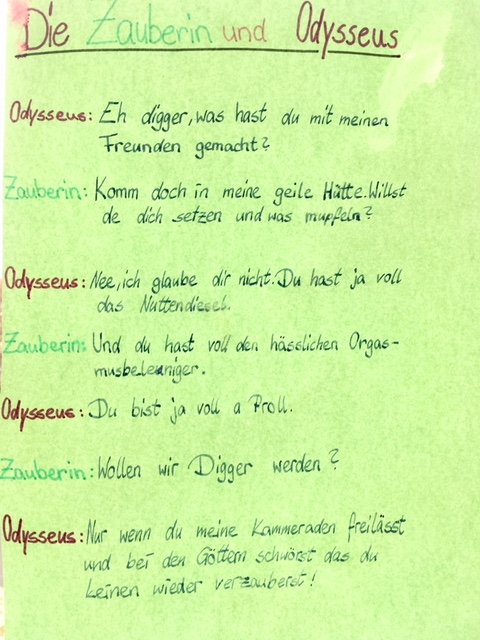 Die Zauberin und Odysseus
Odysseus: Eh digger, was hast du mit meinen
Freunden gemacht?
Zauberin: Komm doch in meine geile Hütte. Willst
de dich setzen und was mupfeln?
Odysseus: Nee, ich glaube dir nicht. Du hast ja voll
das Nuttendiesel.
Zauberin: Und du hast voll den hässlichen Orgas-
musbeleuniger.
Odysseus: Du bist ja voll a Proll.
Zauberin: Wollen wir Digger werden?
Odysseus: Nur wenn du meine Kammeraden freilässt
und bei den Göttern schwörst das du
keinen wieder verzauberst!